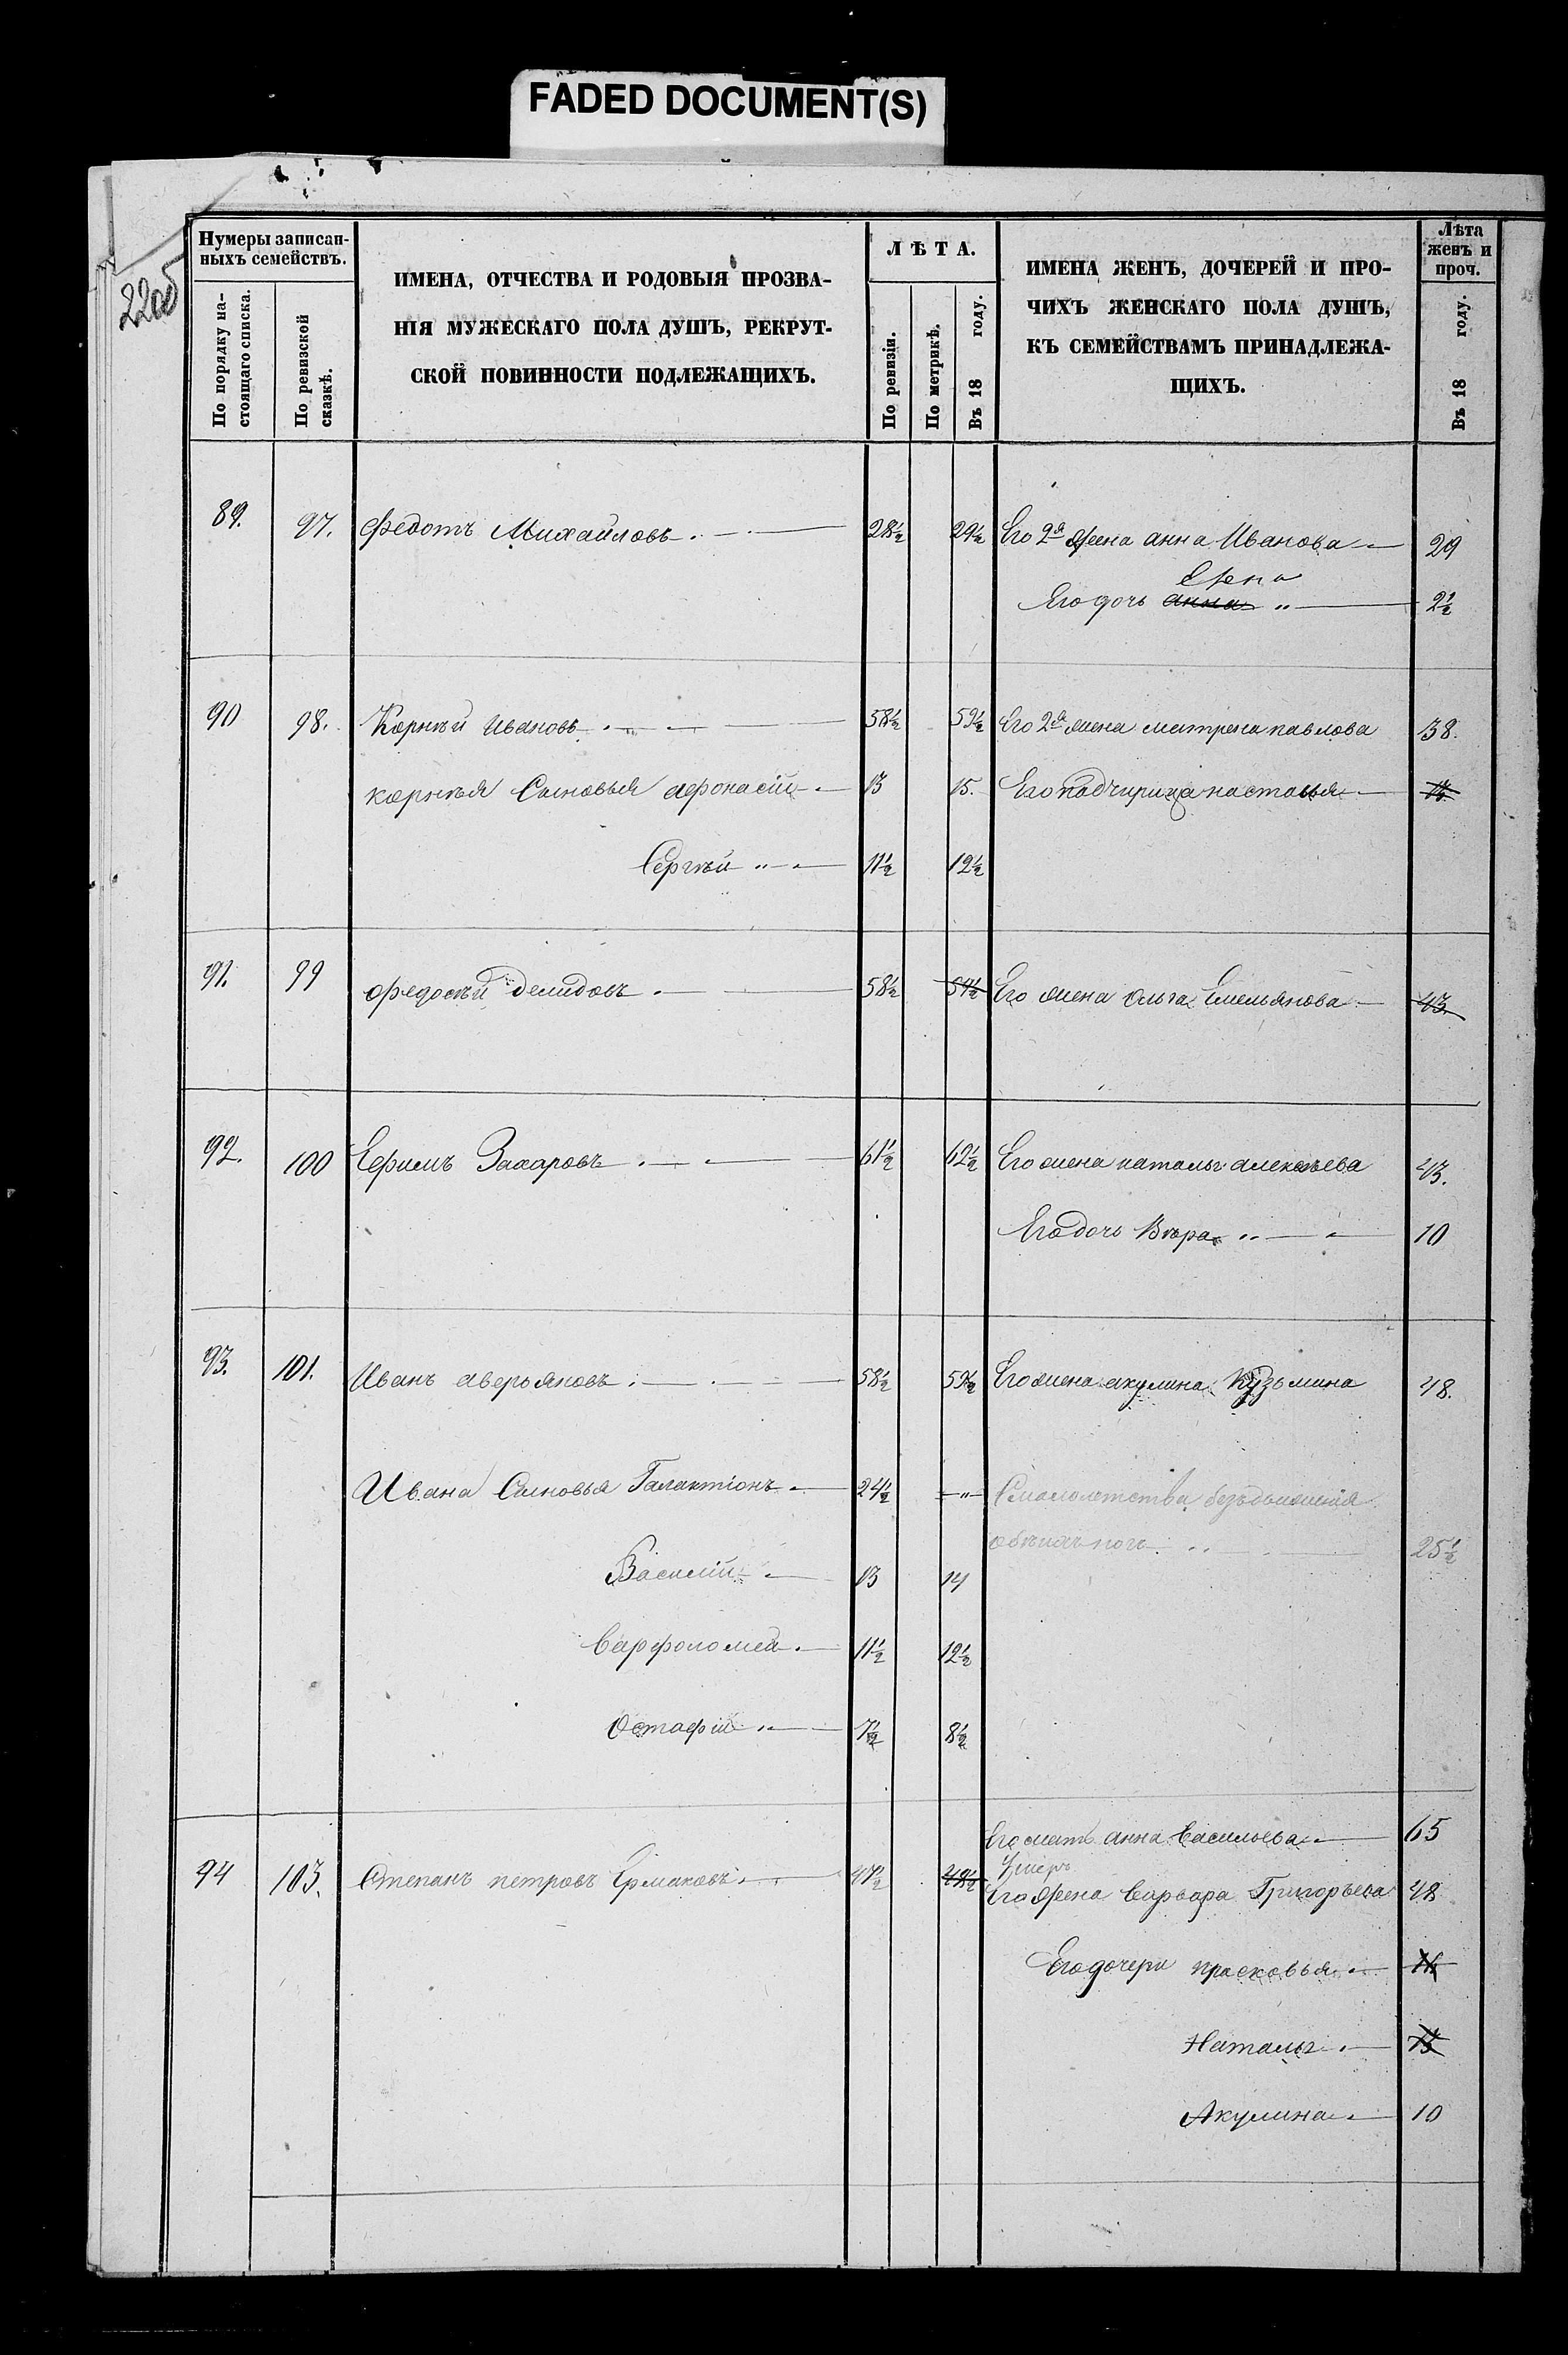 FADED DOCUMENT(S)
220об
Нумеры записан-
ныхъ семействъ.
По порядку на-
стоящаго списка.
По ревизской
сказкѣ.
ИМЕНА, ОТЧЕСТВА И РОДОВЫЯ ПРОЗВА-
НІЯ МУЖЕСКАГО ПОЛА ДУШЪ, РЕКРУТ-
СКОЙ ПОВИННОСТИ ПОДЛЕЖАЩИХЪ.
ЛѢТА.
По ревизіи.
По метрикѣ.
Въ 18 году.
ИМЕНА ЖЕНЪ, ДОЧЕРЕЙ И ПРО-
ЧИХЪ ЖЕНСКАГО ПОЛА ДУШЪ,
КЪ СЕМЕЙСТВАМЪ ПРИНАДЛЕЖА-
ЩИХЪ.
Лѣта
женъ и
проч.
Въ 18 году.
89. 97. Федотъ Михайловъ 28½ 29½ Его 2я жена анна Иванова 29
Елена
Его дочь анна " 2½
90 98. Корнѣй Ивановъ 58½ 59½ Его 2я жена матрена павлова 38.
корнѣя Сыновья афонасій 13 15. Его падчирица настасья 13.
Сергѣй 11½ 12½
91. 99 федосѣй демидовъ 58½ 59½ Его жена Ольга Емельянова 43.
92. 100 Ефимъ Захаровъ 61½ 62½ Его жена наталья алексѣева 43.
Его дочь Вѣра 10
93. 101. Иванъ аверьяновъ 58½ 59½ Его жена акулина Кузьмина 48.
Ивана Сыновья Галактіонъ 24½ —"— Смалолетства безъдвиженія
обѣихъ ногъ 25½
Василій 13 14
Варфоломей 11½ 12½
Остафій 7½ 8½
Его мать анна Васильева 65
94 103. Степанъ петровъ Ермаковъ 47½ 48½ Умеръ
Его жена Варвара Григорьева 48
Его дочери прасковья
Наталья 13
Акулина 10